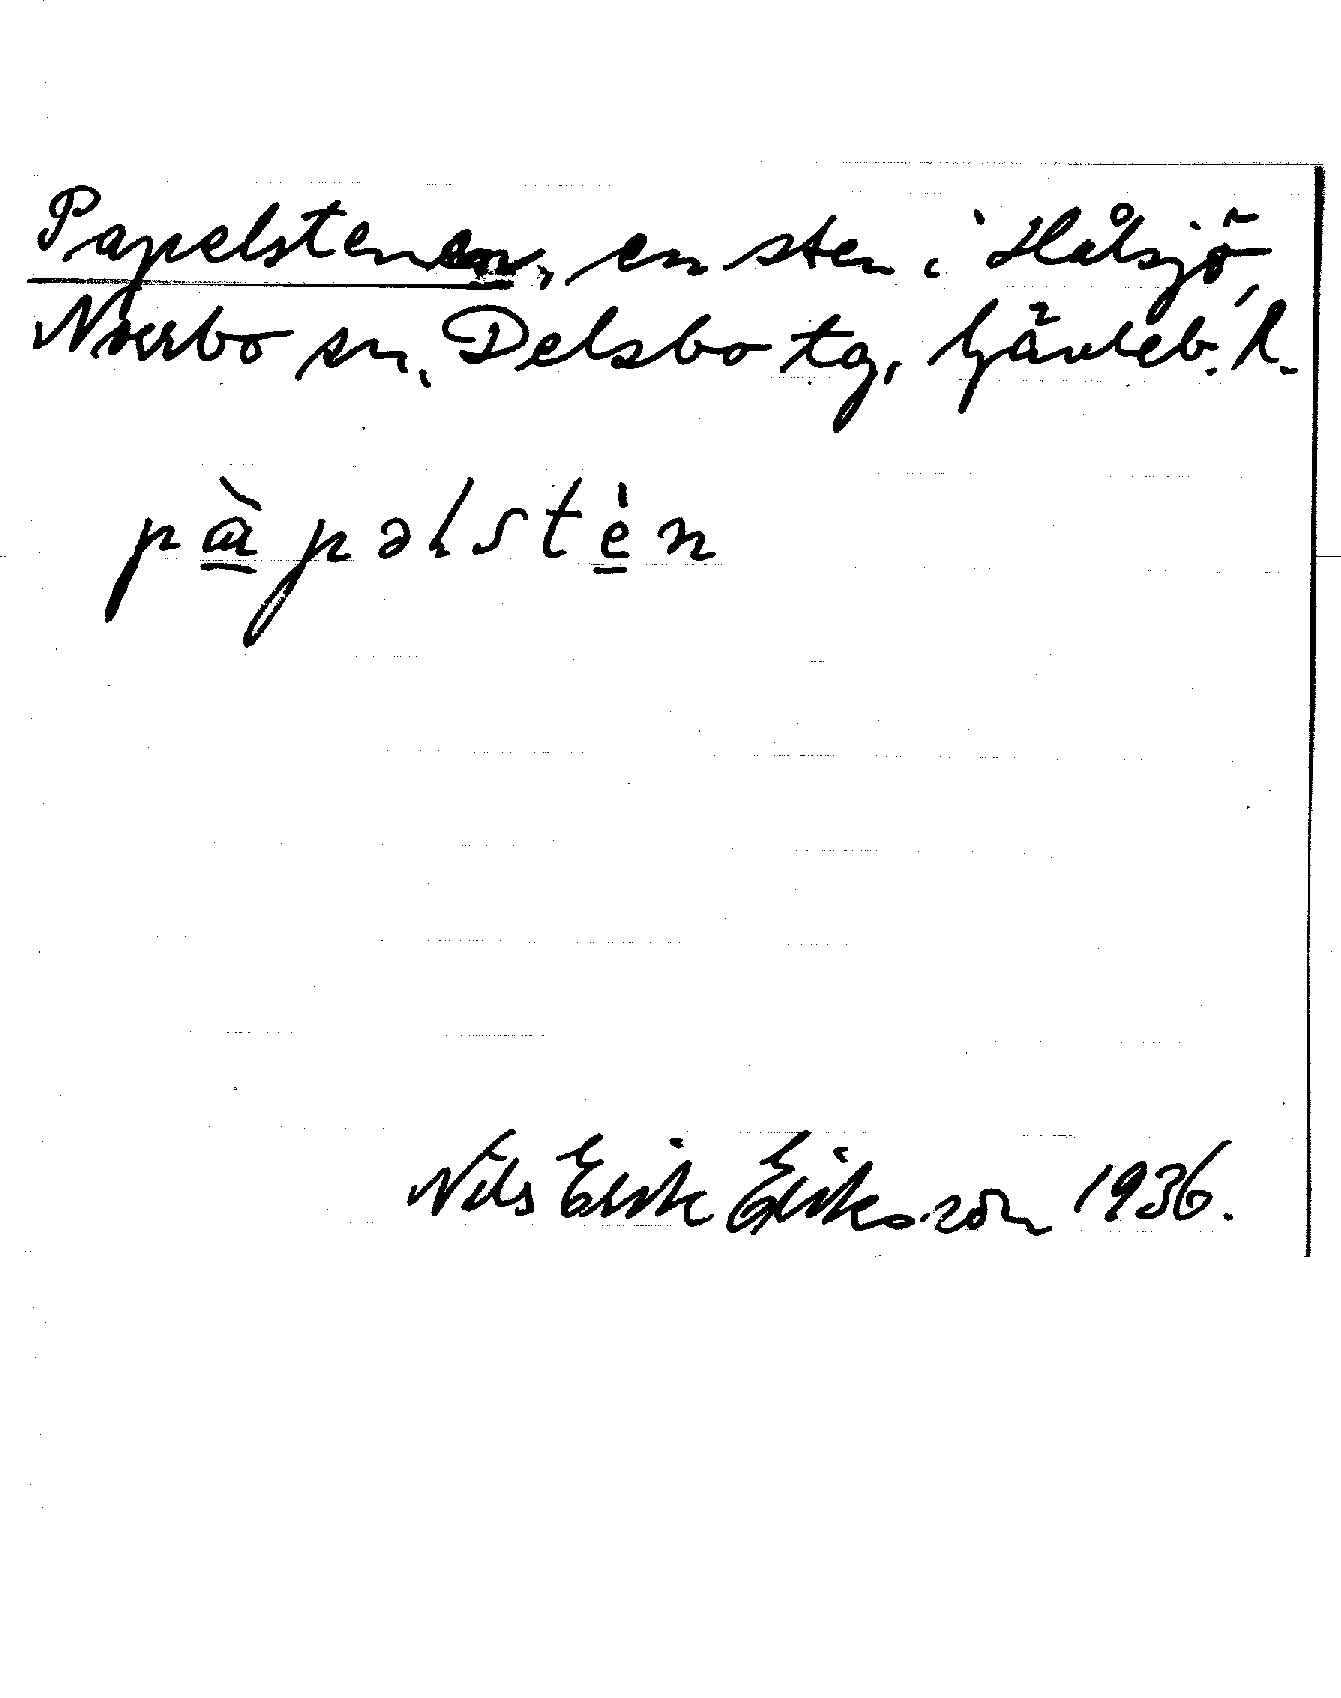 Papelstenen, en sten i Hålsjö,
Norrbo sn, Delsbo tg, Gävleb. l.
pàpəlstèn
Nils Erik Eriksson 1936.